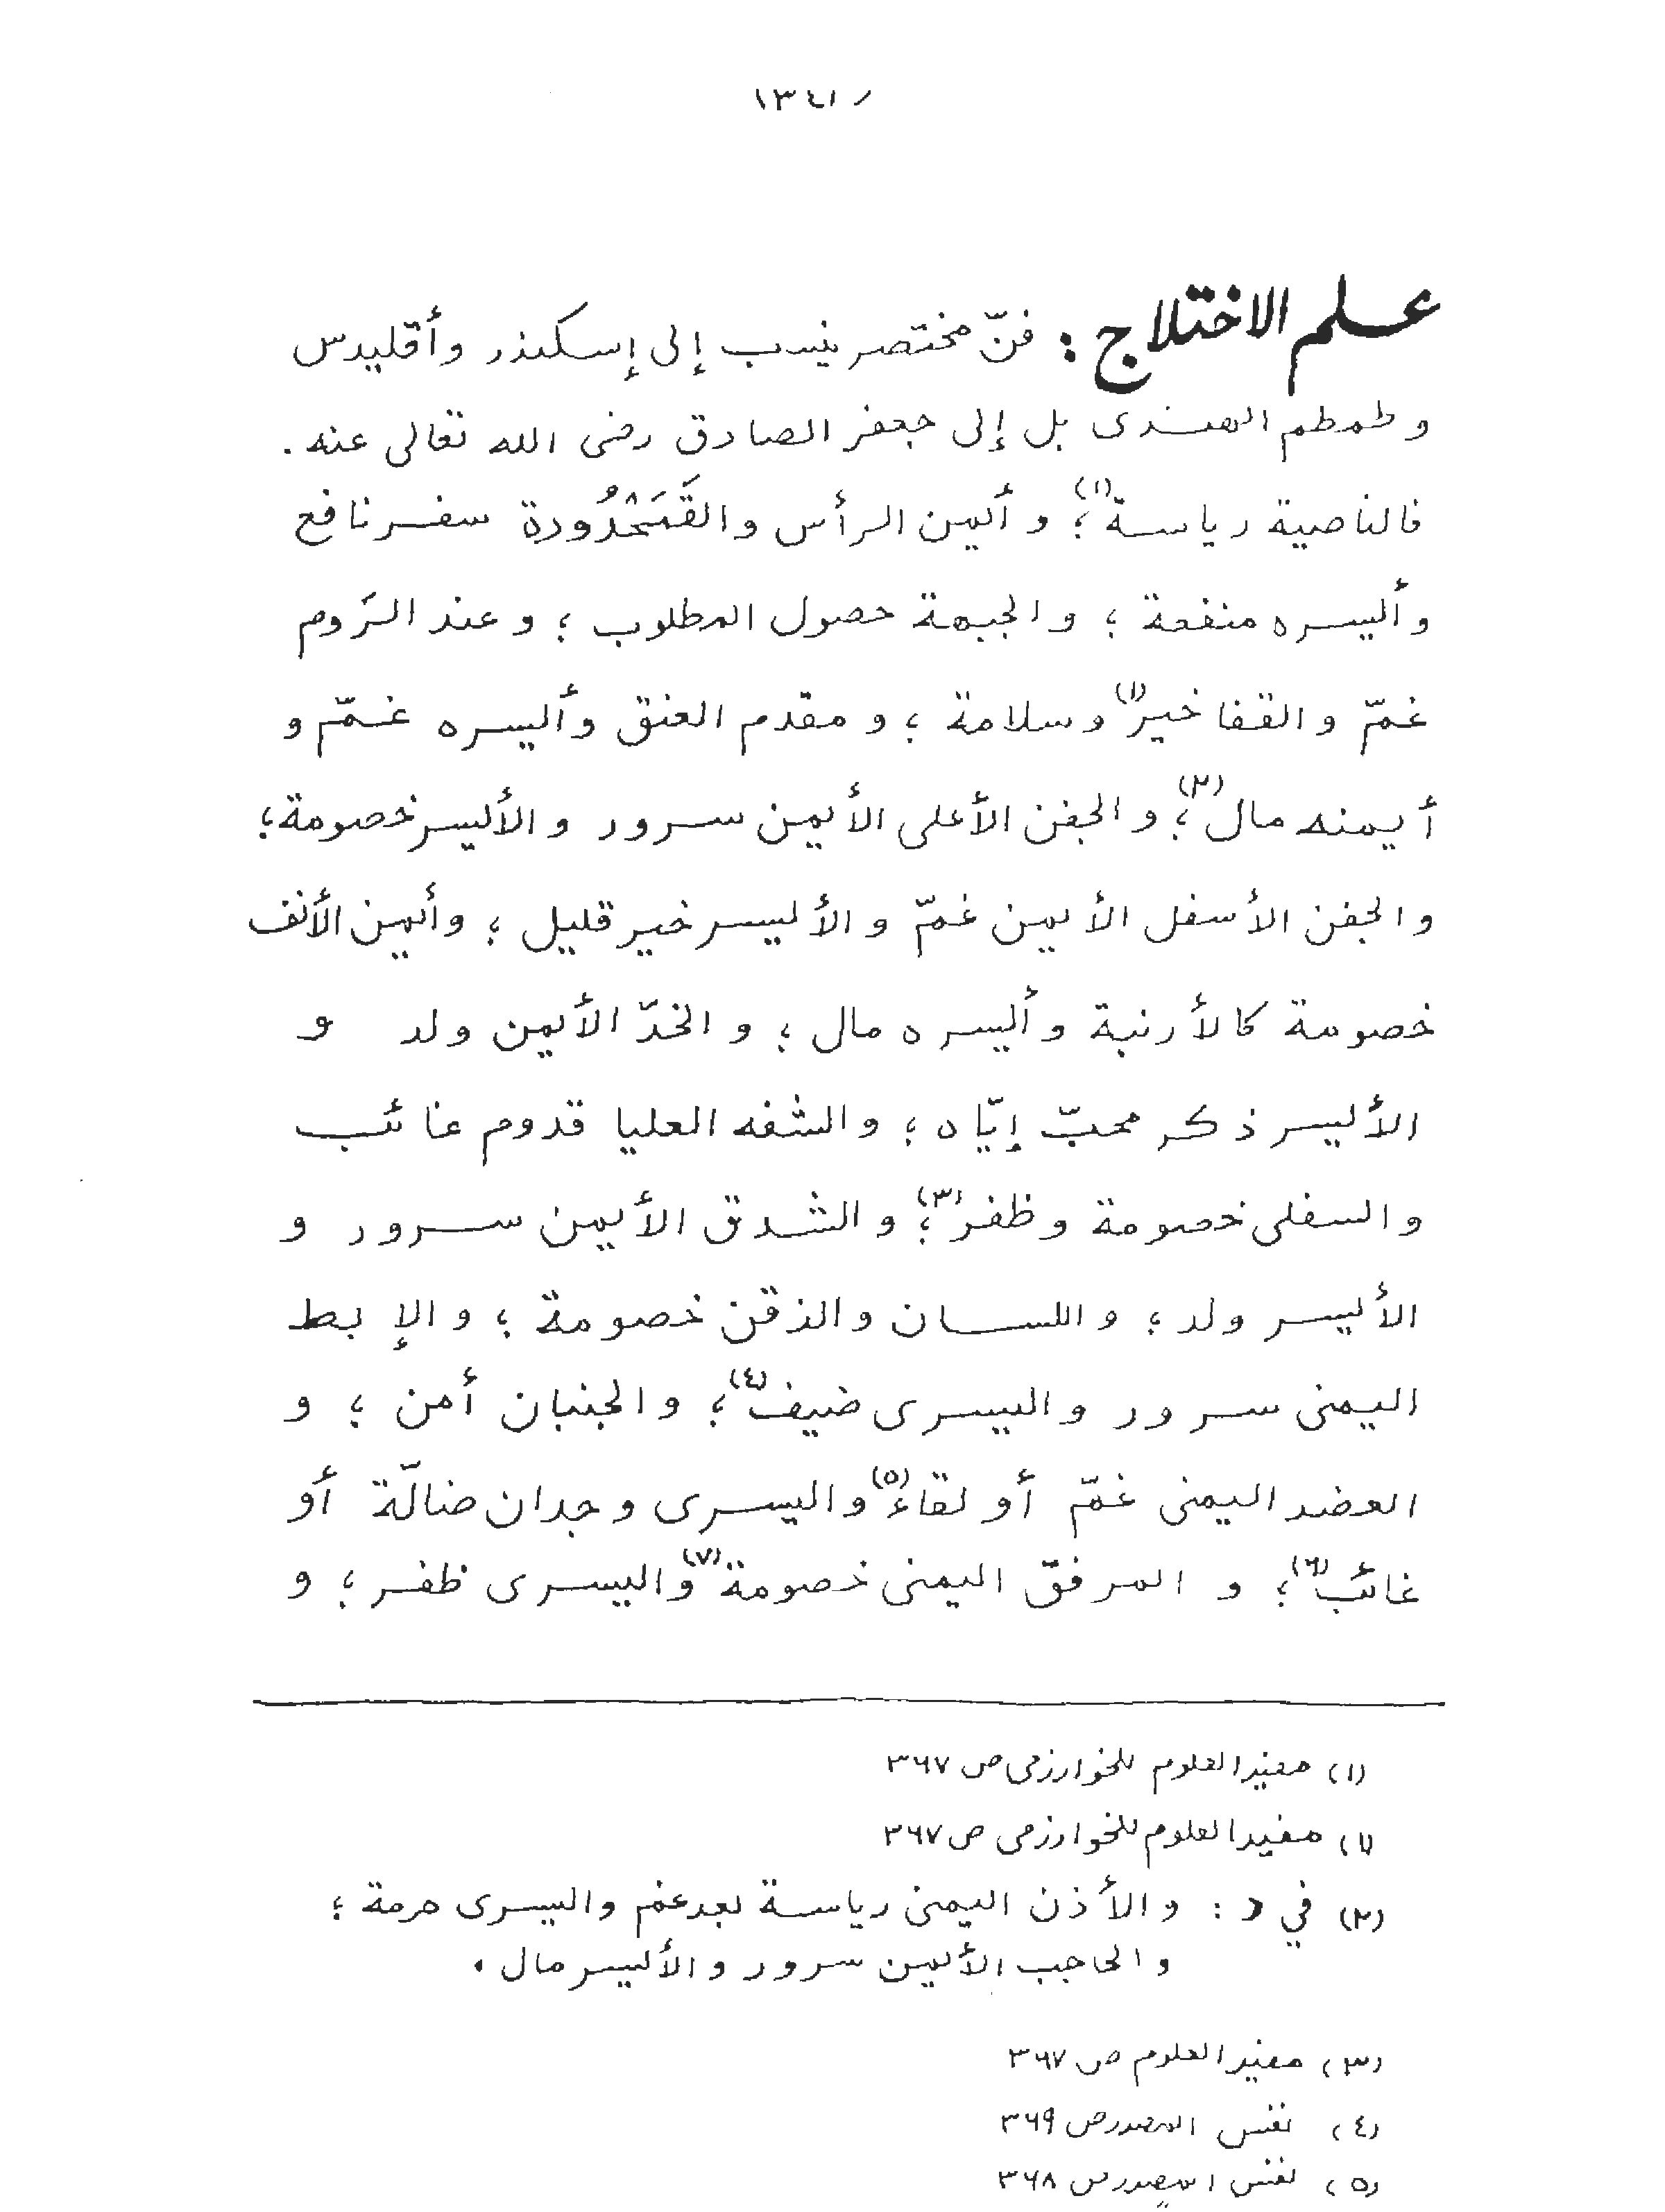 ١٣٤١ /
علم الاختلاج : فنّ مختصر ينسب إلى إسكندر وأقليدس
وطمطم الهندى بل إلى جعفر الصادق رضى الله تعالى عنه .
فالناصية رياسة (١)؛ و أيمن الرأس والقَمَحْدُودة سفر نافع
وأيسره منفعة ؛ والجبهة حصول المطلوب ؛ وعند الرّوم
غمّ والقفا خير (١) وسلامة ؛ و مقدم العنق وأيسره غمّ و
أيمنه مال (٢)؛ والجفن الأعلى الأيمن سرور والأيسر خصومة ؛
والجفن الأسفل الأيمن غمّ والأيسر خير قليل ؛ وأيمن الأنف
خصومة كالأرنبة وأيسره مال ؛ والخدّ الأيمن ولد و
الأيسر ذكر محبّ إيّاه ؛ والشفه العليا قدوم غائب
والسفلى خصومة وظفر (٣)؛ والشدق الأيمن سرور و
الأيسر ولد ؛ واللسان والذقن خصومة ؛ والإبط
اليمنى سرور واليسرى ضيف (٤)؛ والجنبان أمن ؛ و
العضد اليمنى غمّ أو لقاء (٥) واليسرى وجدان ضالّة أو
غائب (٦)؛ و المرفق اليمنى خصومة (٧) واليسرى ظفر ؛ و
(١) مفيد العلوم للخوارزمى ص ٣٦٧
(١) مفيد العلوم للخوارزمى ص ٣٦٧
(٢) في د : والأذن اليمنى رياسة بعد غم واليسرى حرمة ؛
والحاجب الأيمن سرور والأيسر مال .
(٣) مفيد العلوم ص ٣٦٧
(٤) نفس المصدر ص ٣٦٩
(٥) نفس المصدر ص ٣٦٨